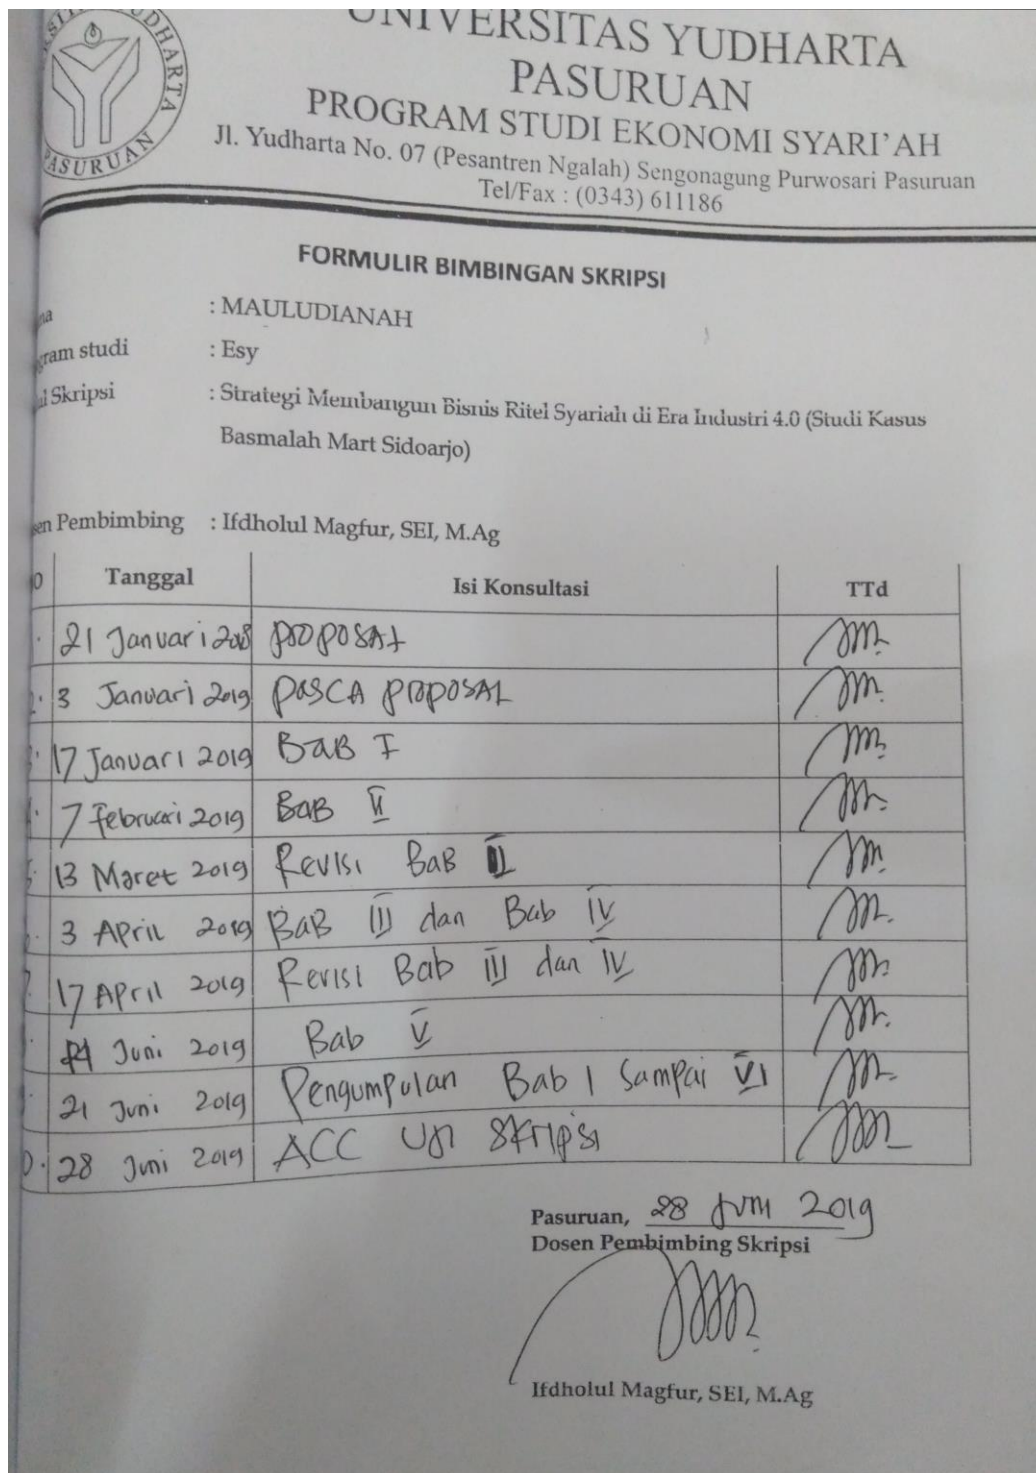 UNIVERSITAS YUDHARTA
PASURUAN
PROGRAM STUDI EKONOMI SYARI'AH
Jl. Yudharta No. 07 (Pesantren Ngalah) Sengonagung Purwosari Pasuruan
Tel/Fax : (0343) 611186
YUDHARTA PASURUAN
FORMULIR BIMBINGAN SKRIPSI
: MAULUDIANAH
gram studi : Esy
Skripsi : Strategi Membangun Bisnis Ritel Syariah di Era Industri 4.0 (Studi Kasus
Basmalah Mart Sidoarjo)
sen Pembimbing : Ifdholul Magfur, SEI, M.Ag
O Tanggal Isi Konsultasi TTd
21 Januari 2018 PROPOSAL
3 Januari 2019 PASCA PROPOSAL
17 Januari 2019 BAB I
7 Februari 2019 BAB II
13 Maret 2019 Revisi BAB II
3 April 2019 BAB III dan Bab IV
17 April 2019 Revisi Bab III dan IV
Juni 2019 Bab V
21 Juni 2019 Pengumpulan Bab 1 Sampai VI
28 Juni 2019 ACC Uji Skripsi
Pasuruan, 28 Juni 2019
Dosen Pembimbing Skripsi
Ifdholul Magfur, SEI, M.Ag